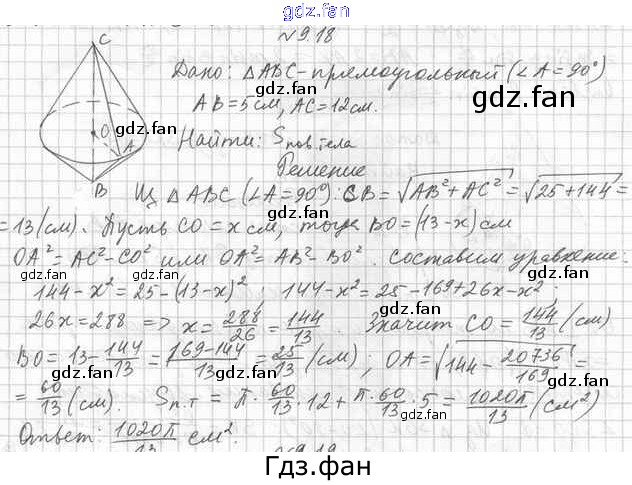 gdz.fan
№9.18
C
O
A
B
Дано: △ABC-прямоугольный (∠A=90°)
AB=5см, AC=12см.
Найти: Sпов.тела
Решение
Из △ABC (∠A=90°): CB=√AB²+AC²=√25+144=
=13(см). Пусть CO=x см, тогда BO=(13-x)см
OA²=AC²-CO² или OA²=AB²-BO². Составим уравнение:
144-x²=25-(13-x)²; 144-x²=25-169+26x-x²;
26x=288 => x=288/26=144/13. Значит CO=144/13(см)
BO=13-144/13=(169-144)/13=25/13(см); OA=√144-20736/169=
=60/13(см). Sп.т=π·60/13·12+π·60/13·5=1020π/13(см²)
Ответ: 1020π/13 см².
№9.19
gdz.fan
gdz.fan
gdz.fan
gdz.fan
gdz.fan
gdz.fan
gdz.fan
gdz.fan
gdz.fan
gdz.fan
gdz.fan
gdz.fan
Гдз.фан